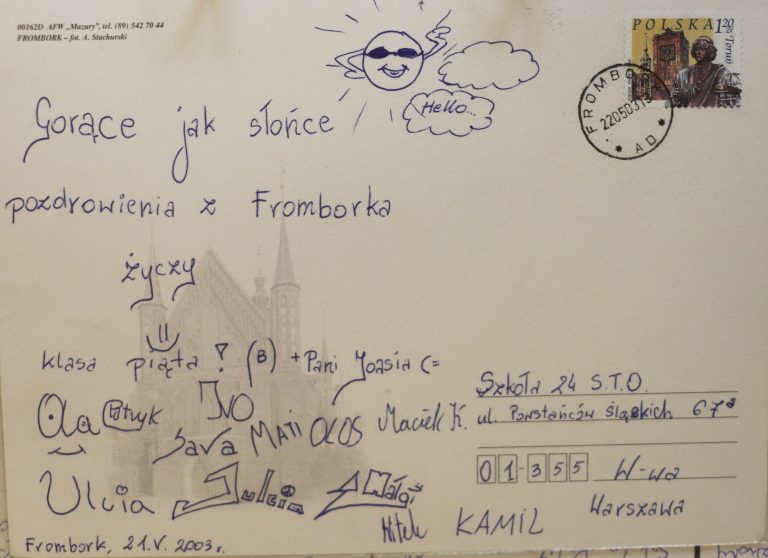 00162D AFW „Mazury”, tel. (89) 542 70 44
FROMBORK – fot. A. Stachurski
POLSKA 1,20 zł
Toruń
FROMBORK
220503
AD
Hello...
Gorące jak słońce
pozdrowienia z Fromborka
życzy
klasa piąta ! (B) + Pani Joasia (=
Ola Patryk IVO
Sara MATI OLOS Maciek K.
Ulcia Julcia Małgi
Witek KAMIL
Frombork, 21.V. 2003 r.
Szkoła 24 S.T.O.
ul. Powstańców Śląskich 67a
01-355 W-wa
Warszawa